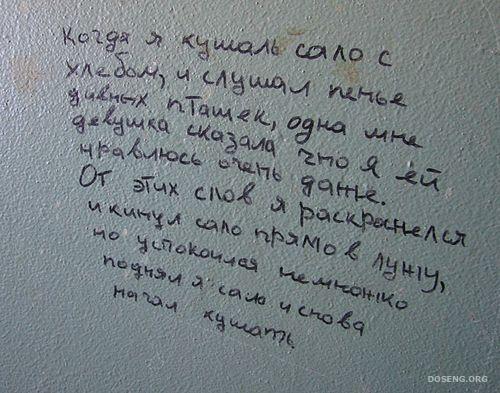 Когда я кушаль сало с
хлебом, и слушал пенье
дивных пташек, одна мне
девушка сказала что я ей
нравлюсь очень даже.
От этих слов я раскранелся
и кинул сало прямо в лужу,
но успокоился немножко
поднял я сало и снова
начал кушать.
DOSENG.ORG